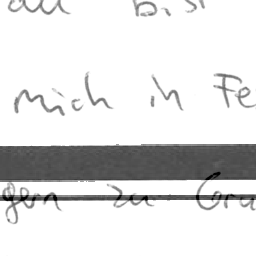 du bist
mich in Fe
gern zu Gru